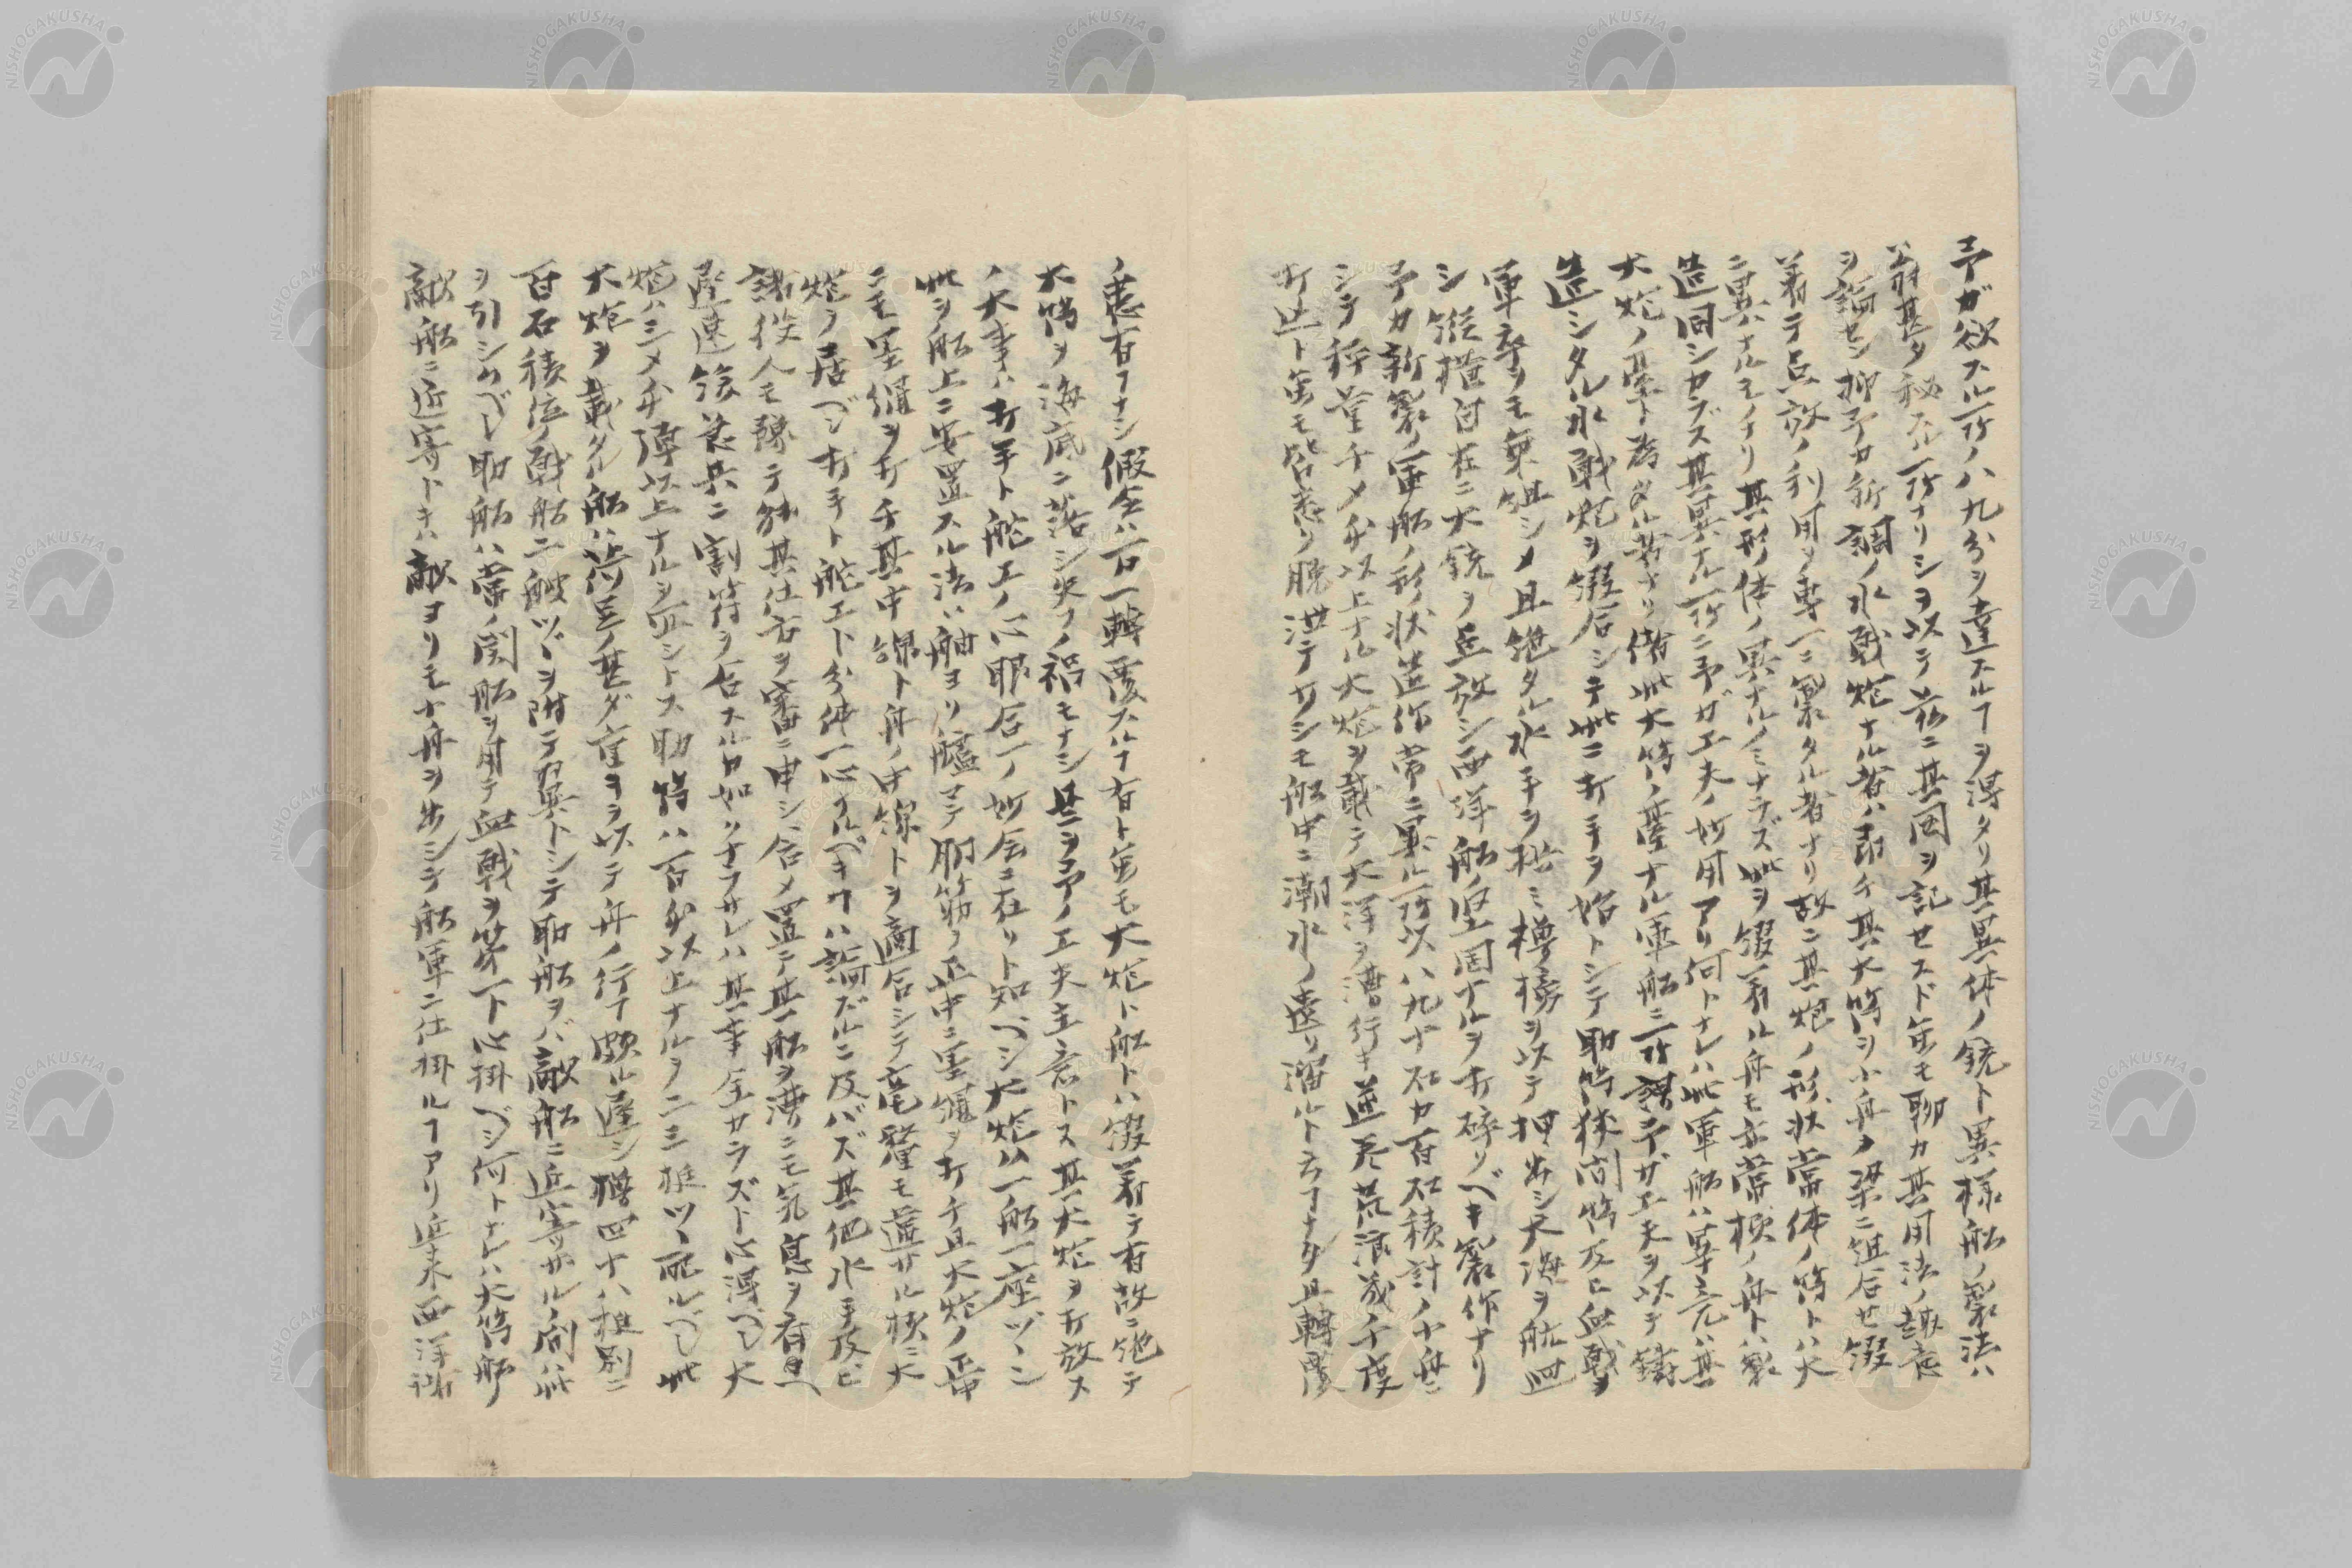 予ガ欲スル所ノ八九分ヲ達スルヿヲ得タリ其異体ノ銃ト異様船ノ製法ハ
翁甚タ秘スル所ナリシヲ以テ茲ニ其図ヲ記セスト雖モ聊カ其用法ノ趣意
ヲ論セン抑予カ新調ノ水戰炮ナル者ハ最チ其大筒ヲ小舟ノ梁ニ組合セ綴
着テ点放ノ利用ヲ專一ニ製タル者ナリ故ニ其炮ノ形状常体ノ筒トハ大
ニ異ナルモノナリ其形ノ体ノ異ナルノミナラズ此ヲ綴着ル舟モ亦常樣ノ舟トハ製
造同シカラズ其異ナル所ニ予ガ工夫ノ妙用アリ何トナレハ此軍船ハ畢竟ハ其
大炮ノ臺ト為タル者ナリ偖此大筒ノ臺ナル軍船ニ所謂予ガ工夫ヲ以テ鑄
造シタル水戰炮ヲ綴合シテ此ニ打手ヲ始トシテ助筒狹間筒及ヒ血戰ヲ
軍卒ヲモ乗組シメ且絶タル水手ヲ撰ミ櫓櫂ヲ以テ押出シ大海ヲ航廻
シ縱橫自在ニ大銃ヲ点放シ西洋船ノ堅固ナルヲ打碎ツベキ製作ナリ
予カ新製ノ軍船ノ形状造作常ニ異ル所以ハ九十石カ百石積計ノ小舟ニ
シテ秤量千メ多以上ナル大炮ヲ載テ大洋ヲ漕行キ逆巻荒浪幾千度
打込ト雖モ皆悉ク脱洪テ少シモ船中ニ潮水ノ遺リ溜ルト云フナク且轉覆
ノ患有ヿナシ假令ハ万一轉覆スルヿ有ト雖モ大炮ト船トハ綴着テ有故ニ絶テ
大筒ヲ海底ニ落シ失フノ禍モナシ是ヲ予ノ工夫主意トス其大炮ヲ打放ス
ノ大事ハ打手ト舵工ノ心眼合一ノ妙会ニ在リト知ベシ大炮ハ一船一座ヅヽニシ
此ヲ船上ニ安置スル法ハ舳ヨリ艫マテ胴筋ノ正中ニ墨繩ヲ打チ且大炮ノ正中
ニモ墨繩ヲ打チ其中線ト舟ノ中線トヲ適合シテ毫釐モ違サル樣ニ大
炮ヲ居ベシ打手ト舵工ト分体一心ナルベキヿハ論ズルニ及バズ其他水手及ヒ
諸役人モ豫テ能其仕方ヲ審ニ申シ合メ置テ其船ヲ漕ニモ気息ヲ有
遲速緩急共ニ割符ヲ合スルカ如クナラサレハ其事全カラズト心得ベシ大
炮ハ三メ多彈以上ナルヲ可シトス助筒ハ百多以上ナルヲ二三挺ツヽ配ルベシ此
大炮ヲ載タル船ハ荷ノ甚ダ重キヲ以テ舟ノ行ヿ頗ル遲シ櫓四十八挺別ニ
百石積位ノ戰船二艘ヅヽヲ附テ翼トシテ助船ヲバ敵船ニ近寄ザルノ間ハ此
ヲ引シムベシ助船ハ常ノ関船ヲ用テ血戰ヲ第一ト心掛ベシ何トナレハ大筒船
敵船ニ近寄トキハ敵ヨリモ小舟ヲ出シテ船軍ニ仕掛ルヿアリ近来西洋諸